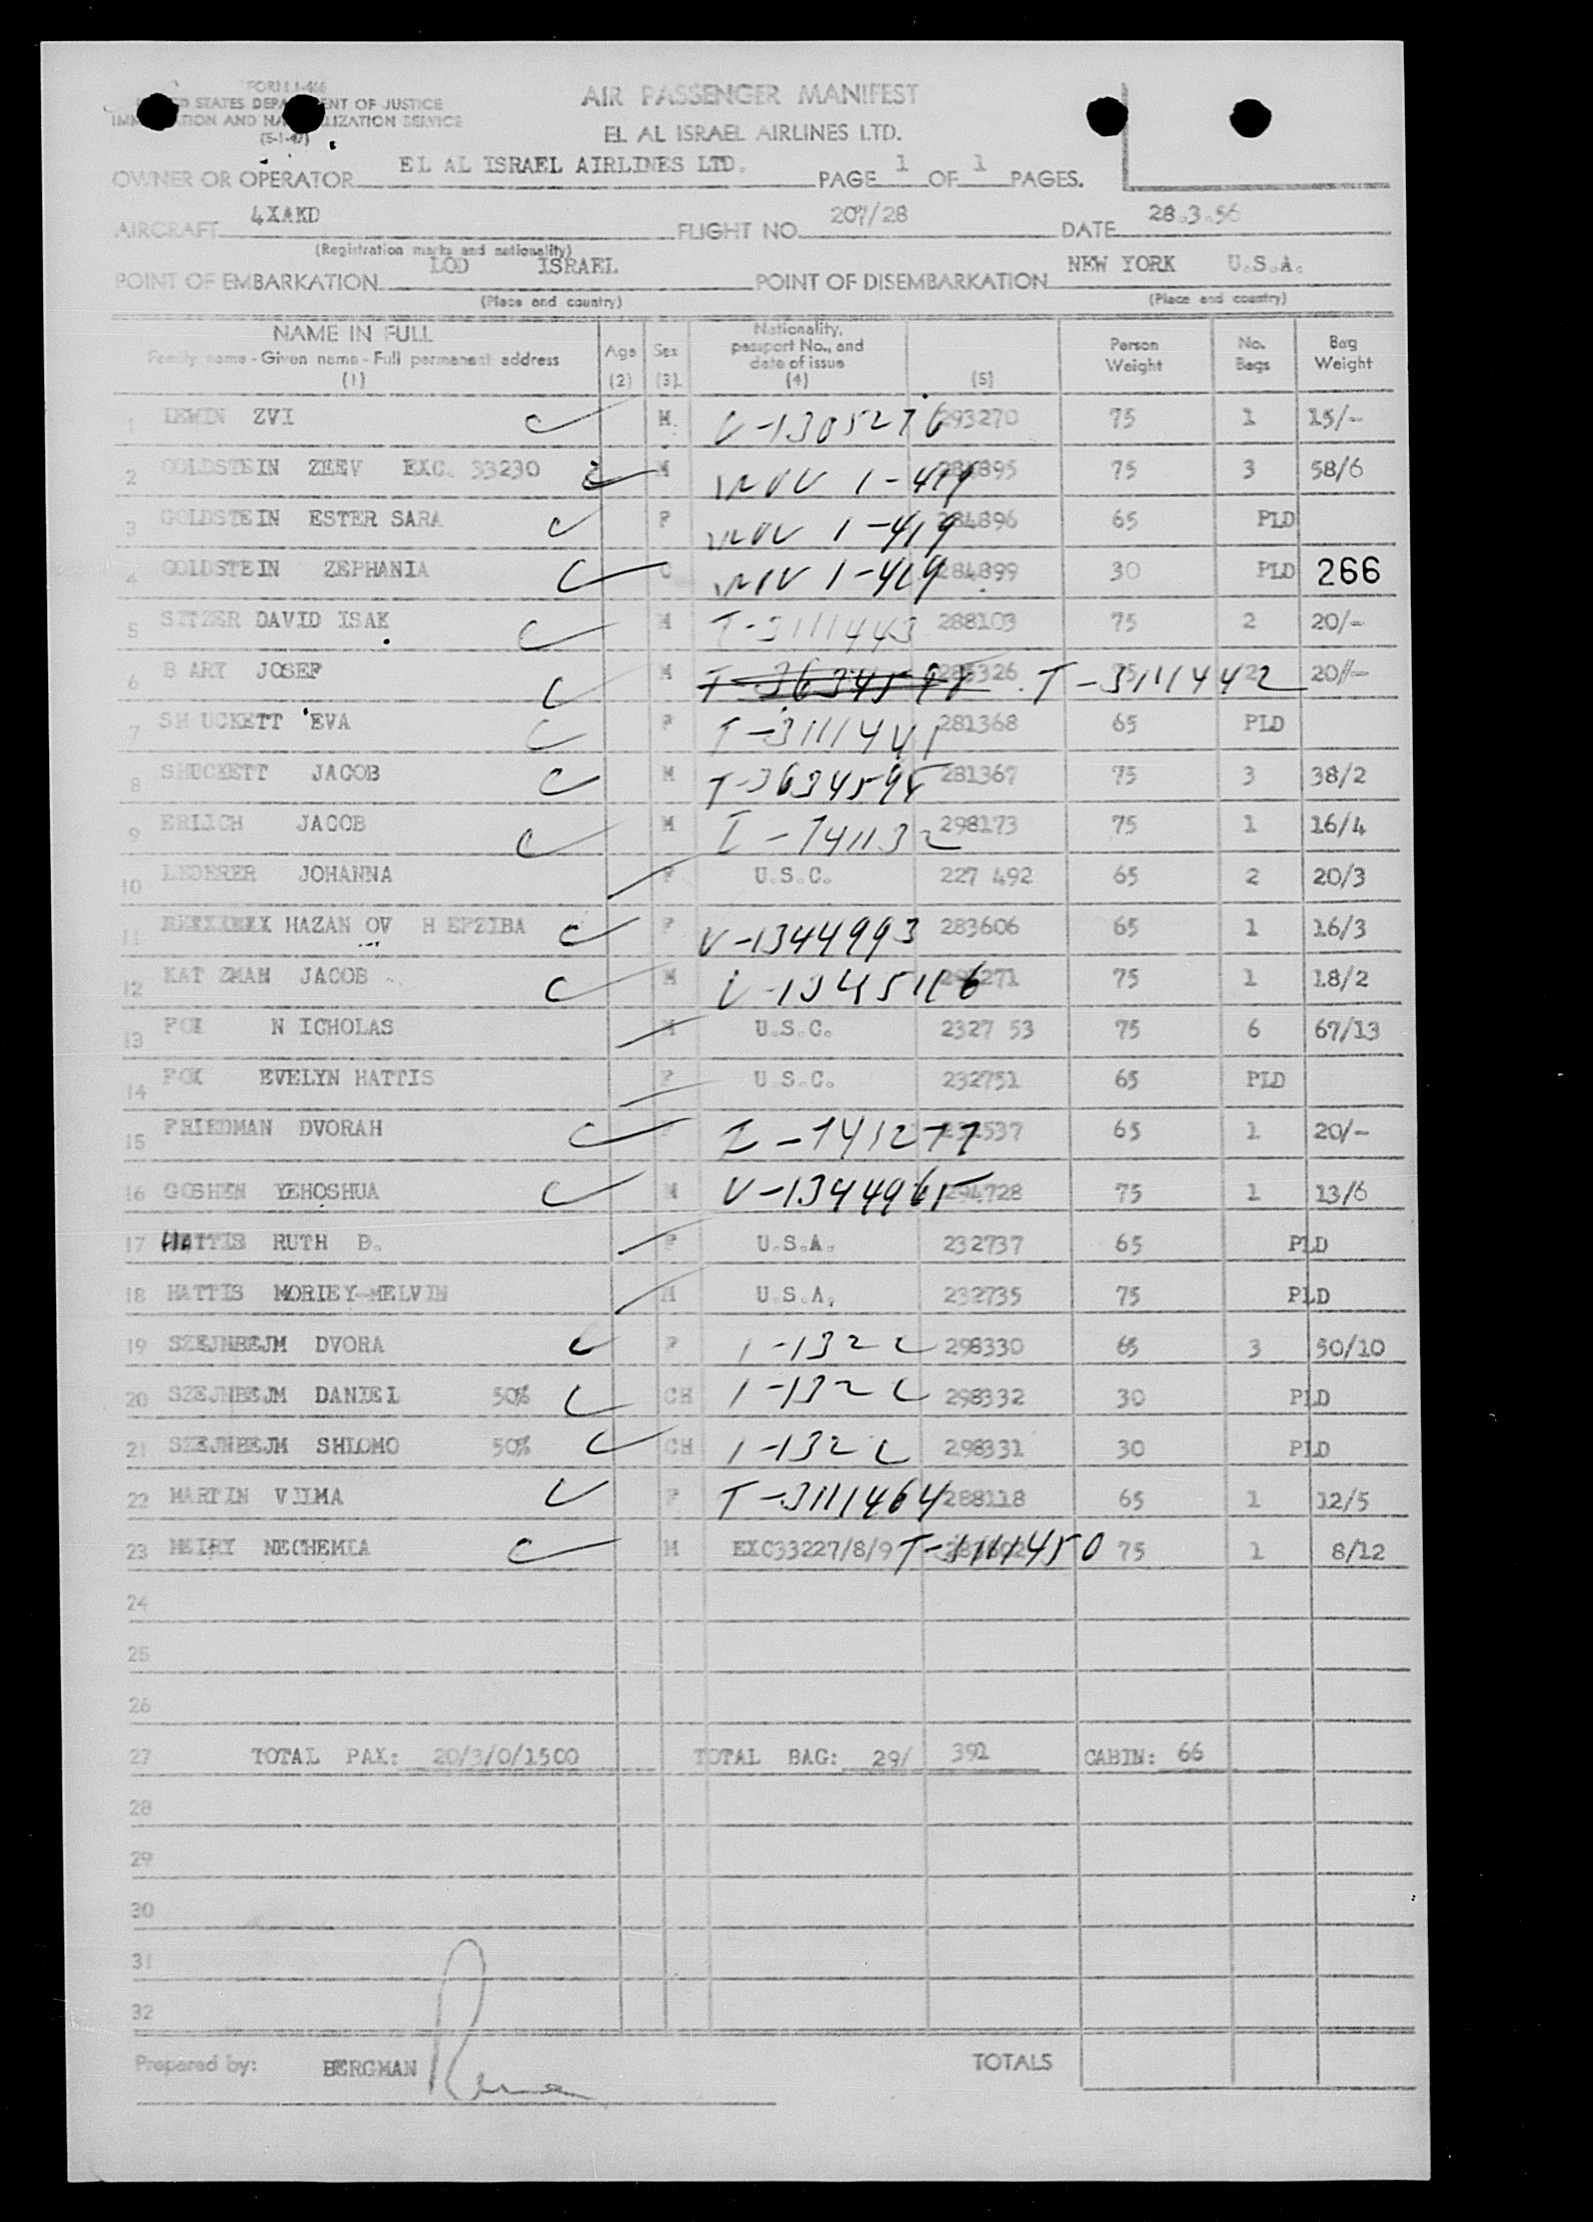 FORM I-466
UNITED STATES DEPARTMENT OF JUSTICE
IMMIGRATION AND NATURALIZATION SERVICE
(5-1-47)
AIR PASSENGER MANIFEST
EL AL ISRAEL AIRLINES LTD.
OWNER OR OPERATOR EL AL ISRAEL AIRLINES LTD. PAGE 1 OF 1 PAGES.
AIRCRAFT 4XAKD FLIGHT NO. 207/28 DATE 28.3.56
(Registration marks and nationality)
POINT OF EMBARKATION LOD ISRAEL POINT OF DISEMBARKATION NEW YORK U.S.A.
(Place and country) (Place and country)
NAME IN FULL Age Sex Nationality, passport No., and date of issue Person Weight No. Bags Bag Weight
Family name - Given name - Full permanent address
(1) (2) (3) (4) (5)
1 LEWIN ZVI M. V-1305276 293270 75 1 15/-
2 GOLDSTEIN ZEEV EXC. 33230 M 1-419 75 3 58/6
3 GOLDSTEIN ESTER SARA F 1-419 284896 65 PLD
4 GOLDSTEIN ZEPHANIA C 1-419 284899 30 PLD 266
5 SITZER DAVID ISAK M T-3111443 288103 75 2 20/-
6 B ARY JOSEF M T-3111442 20//-
7 SH UCKETT EVA F T-3111441 281368 65 PLD
8 SHUCKETT JACOB M T-3634595 281367 75 3 38/2
9 ERLICH JACOB M I-741132 298173 75 1 16/4
10 LEDERER JOHANNA F U.S.C. 227 492 65 2 20/3
11 HAZAN OV H EPZIBA F V-1344993 283606 65 1 16/3
12 KAT ZMAN JACOB M V-1345116 75 1 18/2
13 FOX N ICHOLAS M U.S.C. 2327 53 75 6 67/13
14 FOX EVELYN HATTIS F U.S.C. 232751 65 PLD
15 FRIEDMAN DVORAH F I-741277 65 1 20/-
16 GOSHEN YEHOSHUA M V-1344965 294728 75 1 13/6
17 HATTIS RUTH B. F U.S.A. 232737 65 PLD
18 HATTIS MORIEY-MELVIN M U.S.A. 232735 75 PLD
19 SZEJNBEJM DVORA F 1-132 298330 65 3 50/10
20 SZEJNBEJM DANIEL 50% CH 1-132 298332 30 PLD
21 SZEJNBEJM SHLOMO 50% CH 1-132 298331 30 PLD
22 MARTIN VILMA F T-3111464 288118 65 1 12/5
23 MEIRY NECHEMIA M EXC33227/8/9 T-3111450 75 1 8/12
24
25
26
27 TOTAL PAX: 20/3/0/1500 TOTAL BAG: 29/ 391 CABIN: 66
28
29
30
31
32
Prepared by: BERGMAN TOTALS